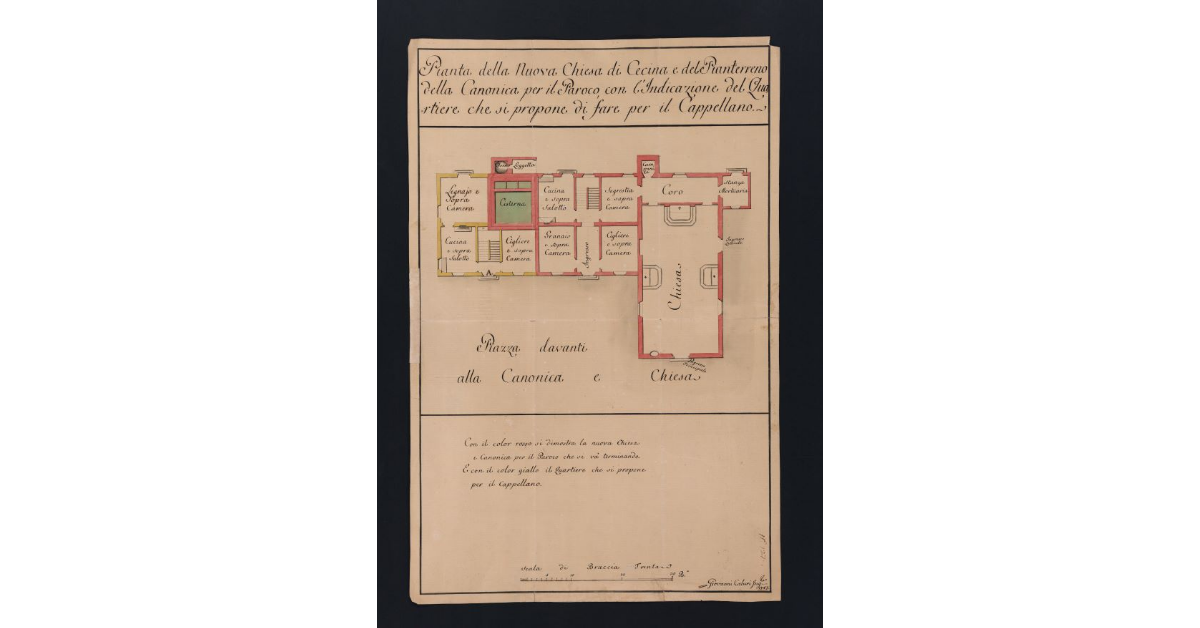 Pianta della Nuova Chiesa di Cecina e del Pianterreno
della Canonica per il Paroco, con l'Indicazione del Qua
rtiere che si propone di fare per il Cappellano
Loggetta
Legnaje e
sopra
Camera
Cisterna
Cucina
e sopra
Salotto
Sagrestia
e sopra
Camera
Coro
Stanza
Mortuaria
Cucina
e sopra
Salotto
Cigliere
e sopra
Camera
A
Pranzio
e sopra
Camera
Ingresso
Cigliere
e sopra
Camera
Chiesa
Ingresso
Piazza davanti
alla Canonica e Chiesa
Porta
Principale
Con il color rosso si dimostra la nuova Chiesa
e Canonica per il Paroco che si và terminando
E con il color giallo il Quartiere che si propone
per il Cappellano
Scala di Braccia Trenta
Giovanni